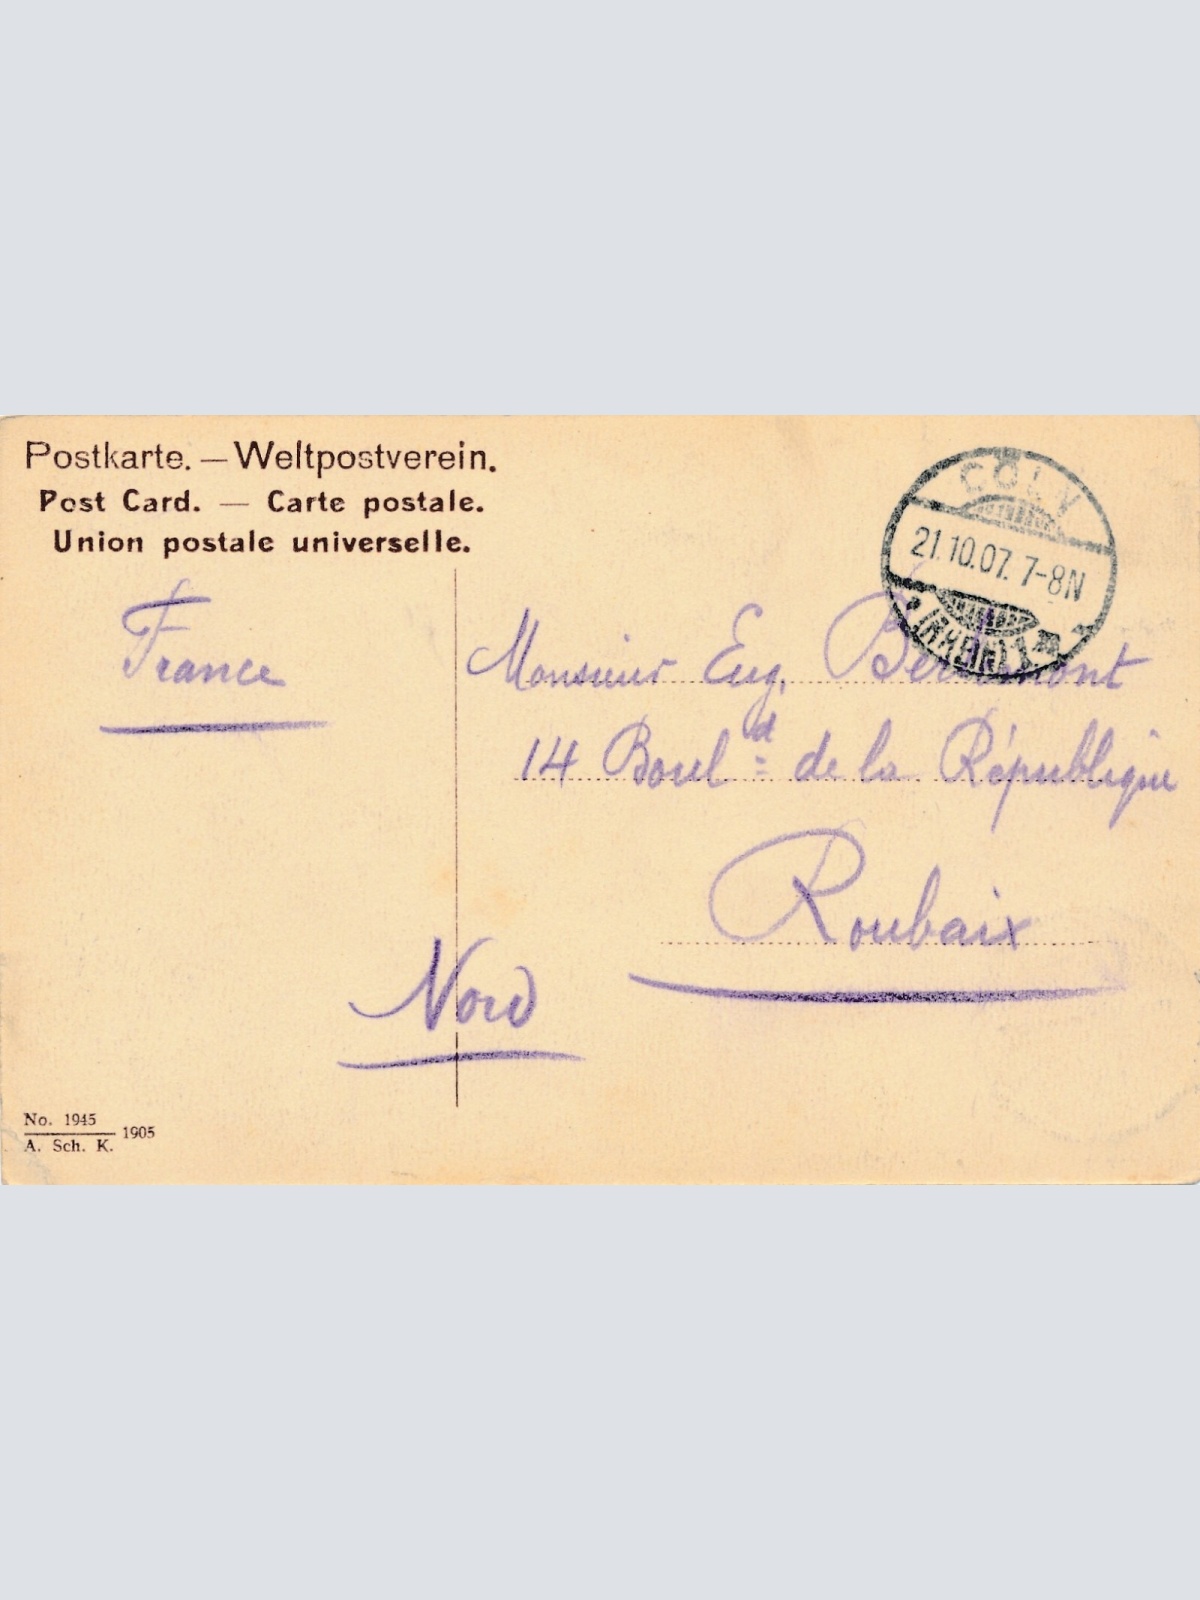 Postkarte. — Weltpostverein.
Post Card. — Carte postale.
Union postale universelle.
CÖLN
21.10.07. 7-8N
(RHEIN) 1
France
Monsieur Eug.
14 Boul d de la République
Roubaix
Nord
No. 1945
A. Sch. K. 1905